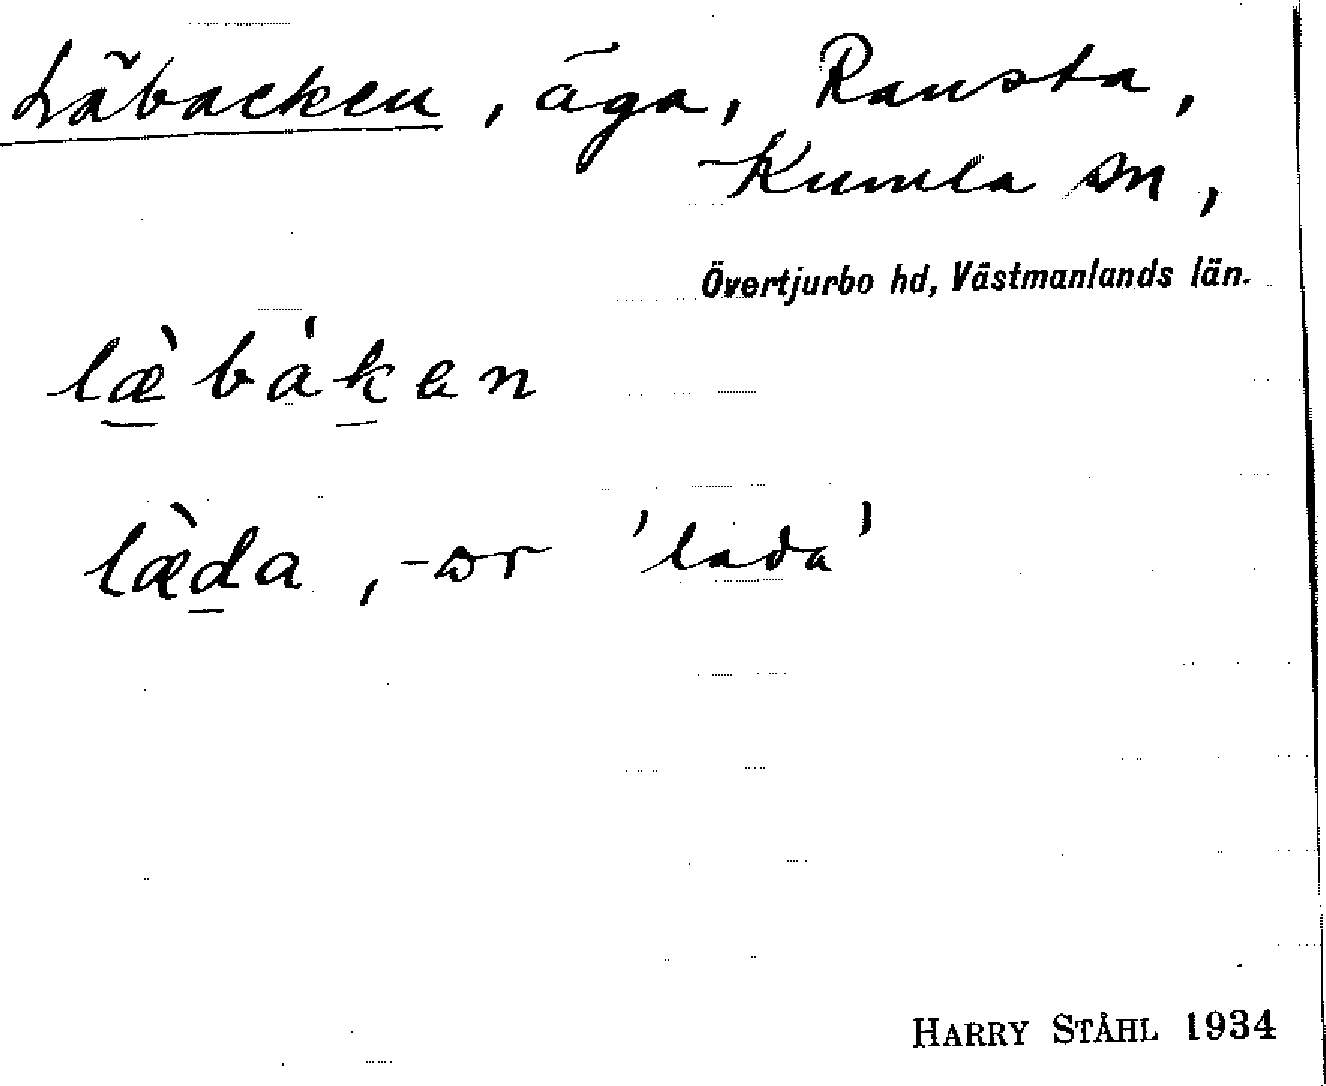 Läbacken, äga, Ransta,
Kumla sn,
Övertjurbo hd, Västmanlands län.
læ̀báken
læ̀da, -ωr 'lada'
HARRY STÅHL 1934